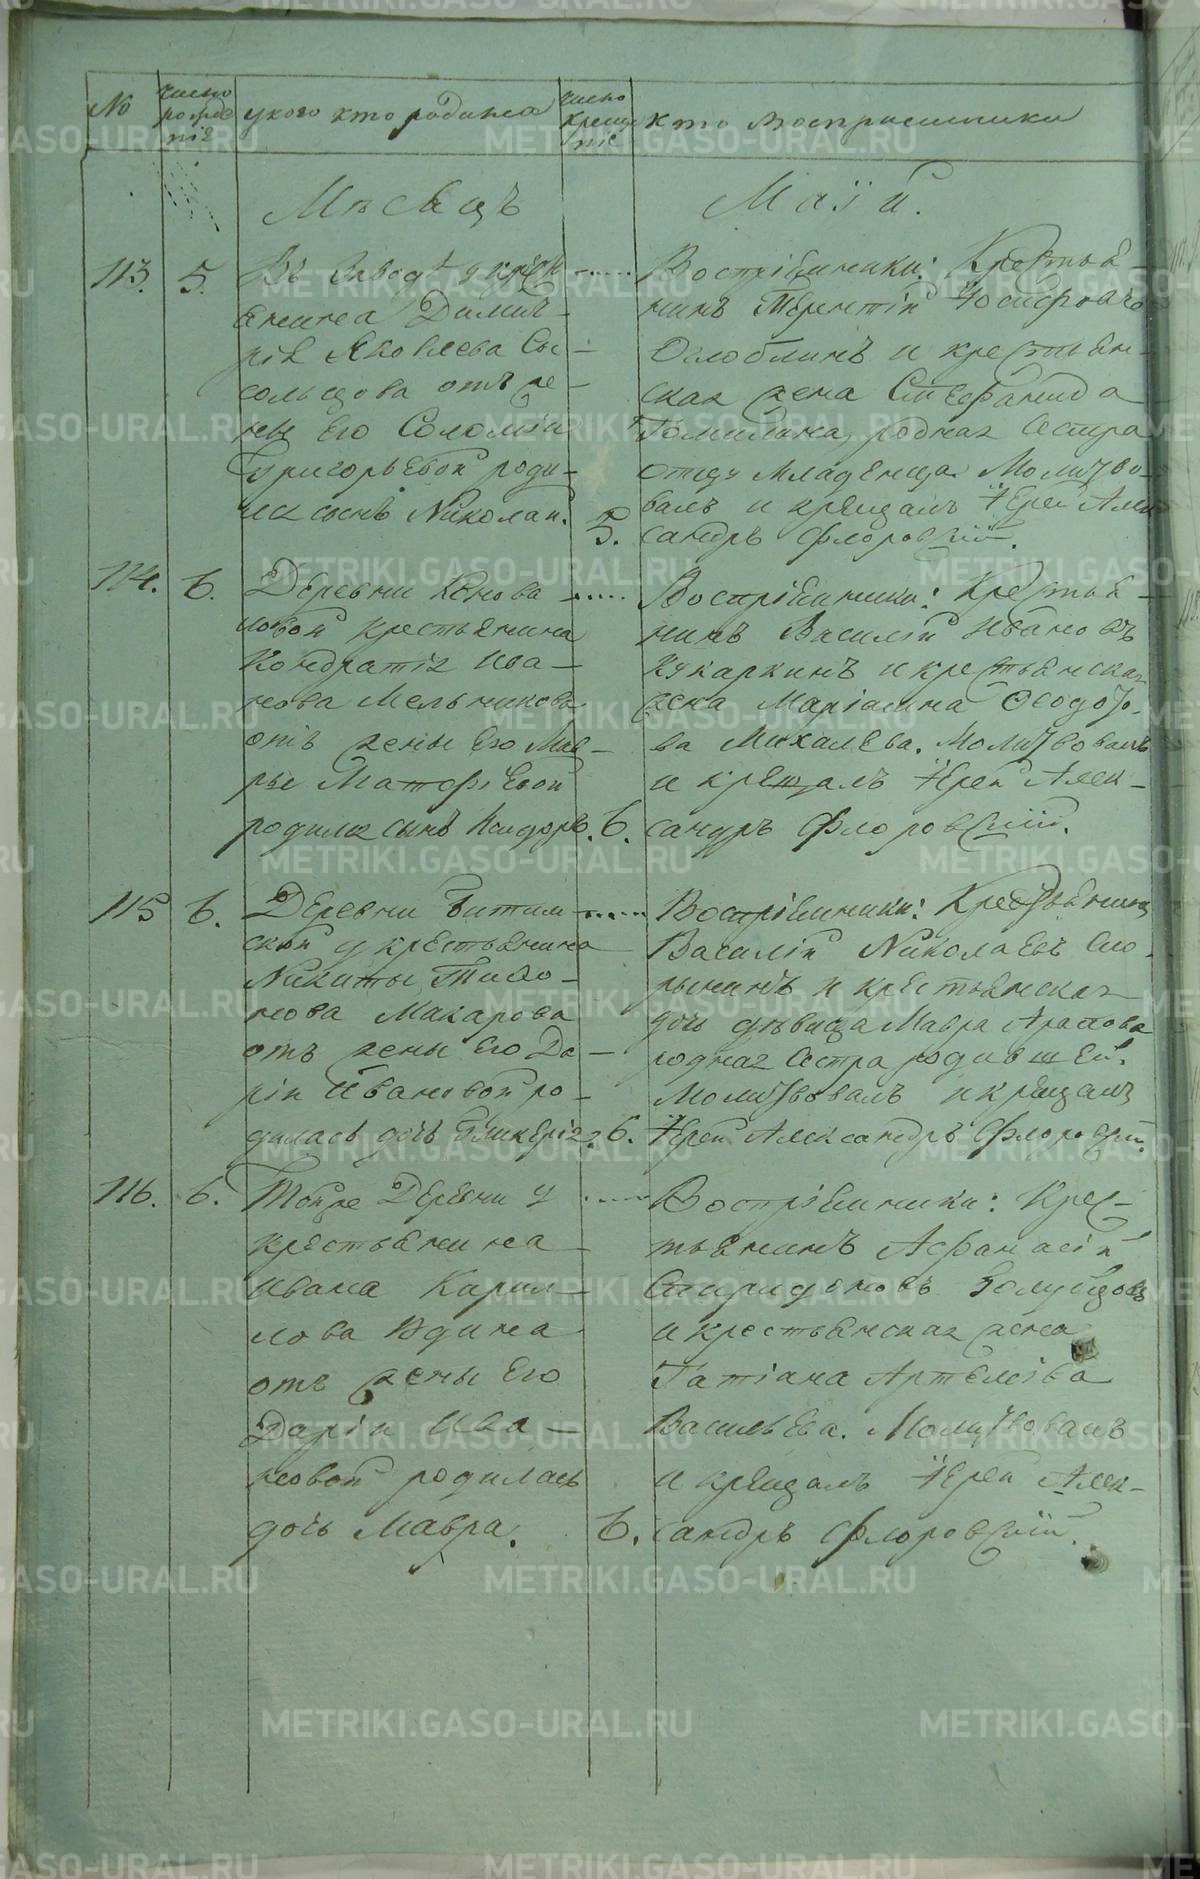 №
число рожде ніе
у кого кто родился
число креще ніе
кто восприемники
Мѣсецъ
Маїй.
113.
5.
Въ Заводѣ у крестья
енина Димит-
рія Яковлева Сы-
сольцова отъ же-
ны его Соломіи
Григорьевой роди-
лся сынъ Николай.
5.
Воспріемники: Крестья-
нинъ Терентій Іосифовъ
Оглоблинъ и крестьян-
ская жена Стефанида
Томилина, родная Сестра
отцу младенца Молитво-
валъ и крещалъ Іерей Алек
сандръ Флоровскій.
114.
6.
Деревни Конова
ловой крестьянина
Кондратія Ива-
нова Мельникова
отъ жены его Мав-
ры Матфіевой
родился сынъ Исидоръ.
6.
Воспріемники: Крестья-
нинъ Василій Ивановъ
Кукаркинъ и крестьянская
жена Маріамна Ѳеодоро-
ва Михалева. Молитвовалъ
и крещалъ Іерей Алек-
сандръ Флоровскій.
115
6.
Деревни Битим-
ской у крестьянина
Никиты Тихо-
нова Макарова
отъ жены его Да-
ріи Ивановой ро-
дилась дочь Гликерія.
6.
Воспріемники: Крестьянинъ
Василій Николаевъ Ско-
рынинъ и крестьянская
дочь дѣвица Мавра Арапова
родная Сестра родившей.
Молитвовалъ и крещалъ
Іерей Александръ Флоровскій.
116.
6.
Тойже Деревни у
крестьянина
Ивана Карил-
лова Юдина
отъ жены его
Даріи Ива-
новой родилась
дочь Мавра.
6.
Воспріемники: Крес-
тьянинъ Афанасій
Спиридоновъ Голубцовъ
и крестьянская жена
Татіана Артеміева
Васильева. Молитвовалъ
и крещалъ Іерей Алек-
сандръ Флоровскій.
METRIKI.GASO-URAL.RU